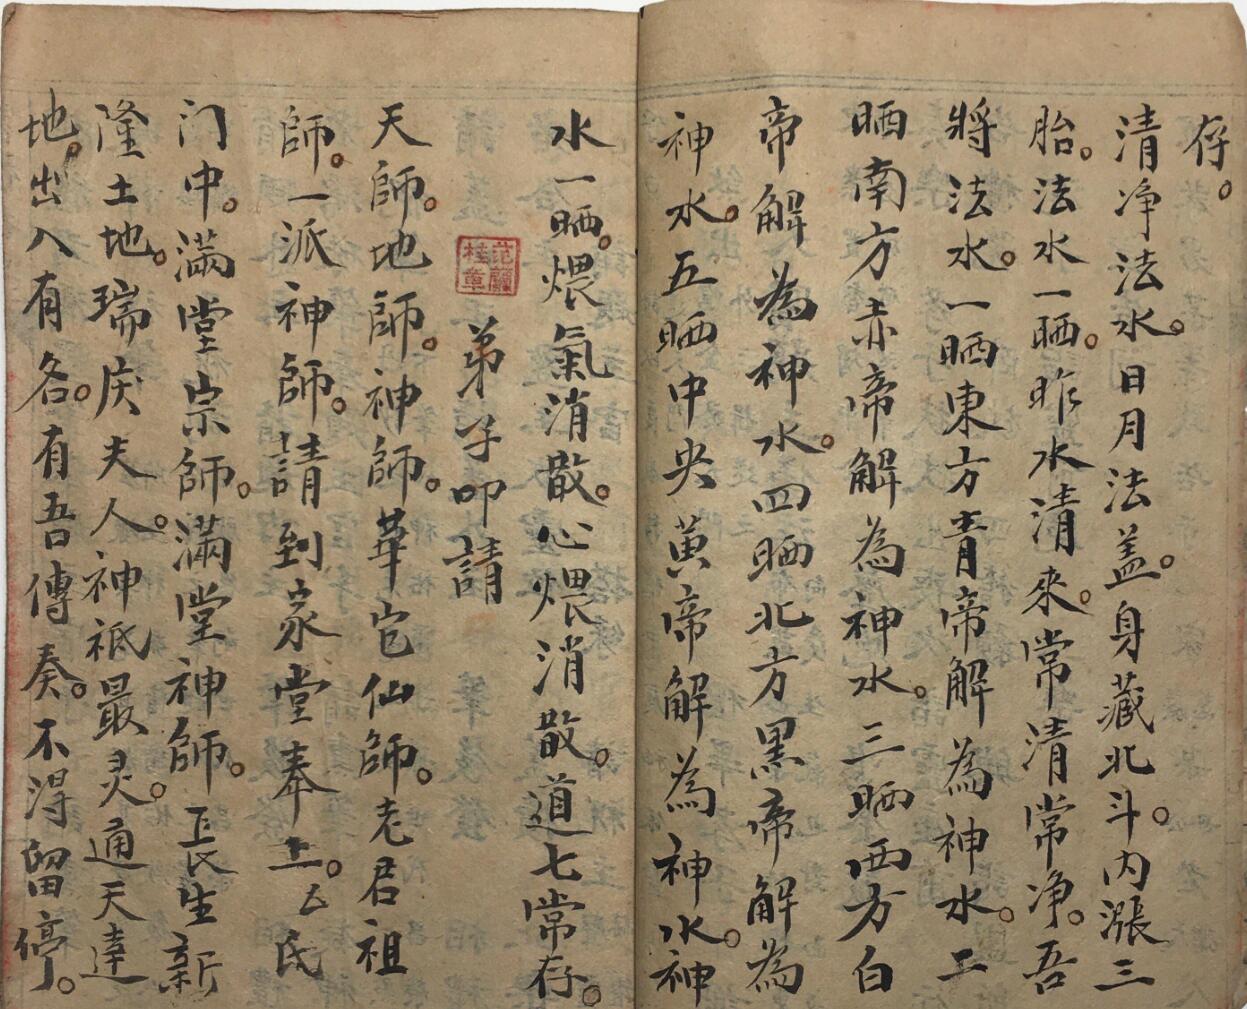 存。
清净法水。日月法盖。身藏北斗。内漲三
胎。法水一晒。昨水清來。常清常净。吾
將法水。一晒東方青帝解為神水。二
晒南方赤帝解為神水。三晒西方白
帝解為神水。四晒北方黑帝解為
神水。五晒中央黄帝解為神水。神
水一晒。煨氣消散。心煨消散。道七常存。
弟子叩請
范蘭桂章
天師。地師。神師。華岂仙師。老君祖
師。一派神師。請到家堂奉上。民
门中。滿堂宗師。滿堂神師。民生新
隆土地。瑞庆夫人。神祇最灵。通天達
地。出入有名。有吾傳奏。不得留停。